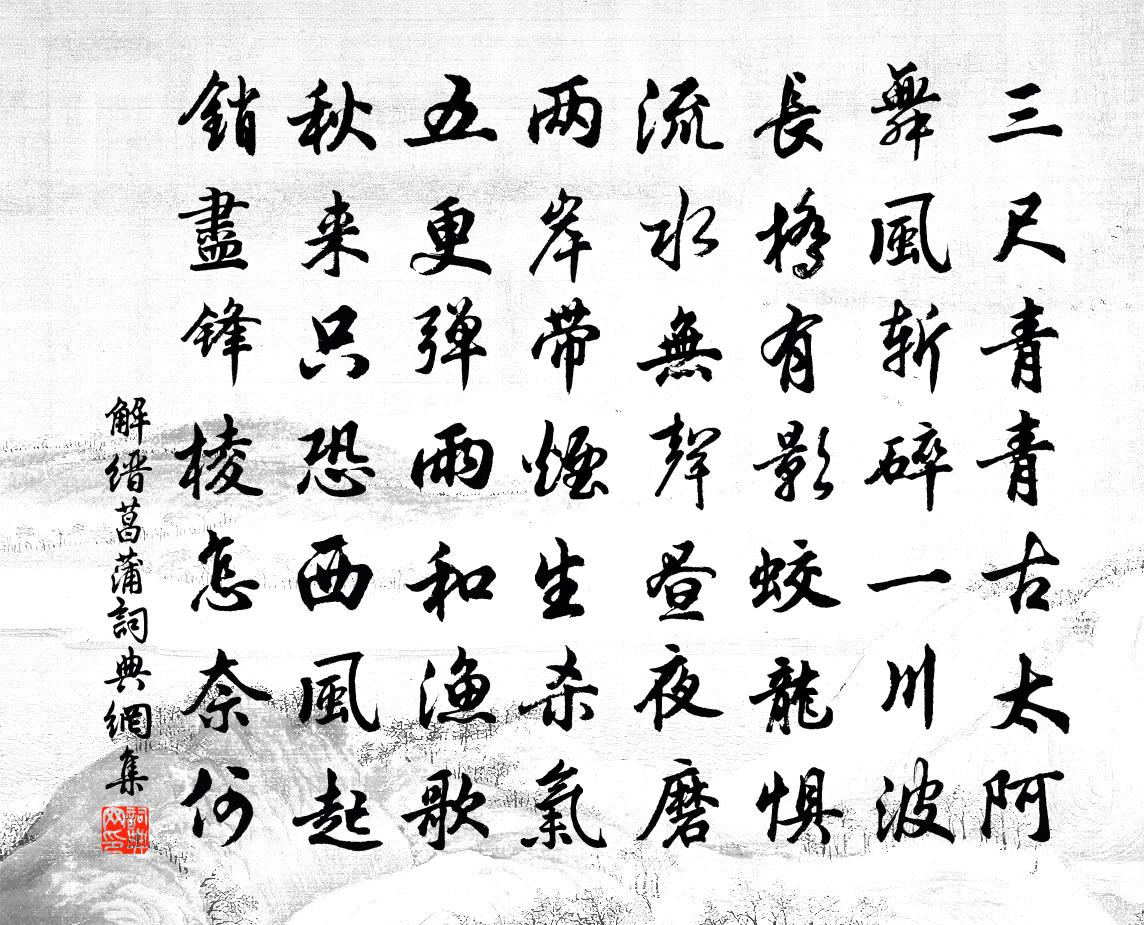 三尺青青古太阿
舞風斩碎一川波
長橋有影蛟龍惧
流水無聲昼夜磨
两岸带煙生杀氣
五更弹雨和渔歌
秋来只恐西風起
銷盡锋棱怎奈何
解缙菖蒲詞典網集